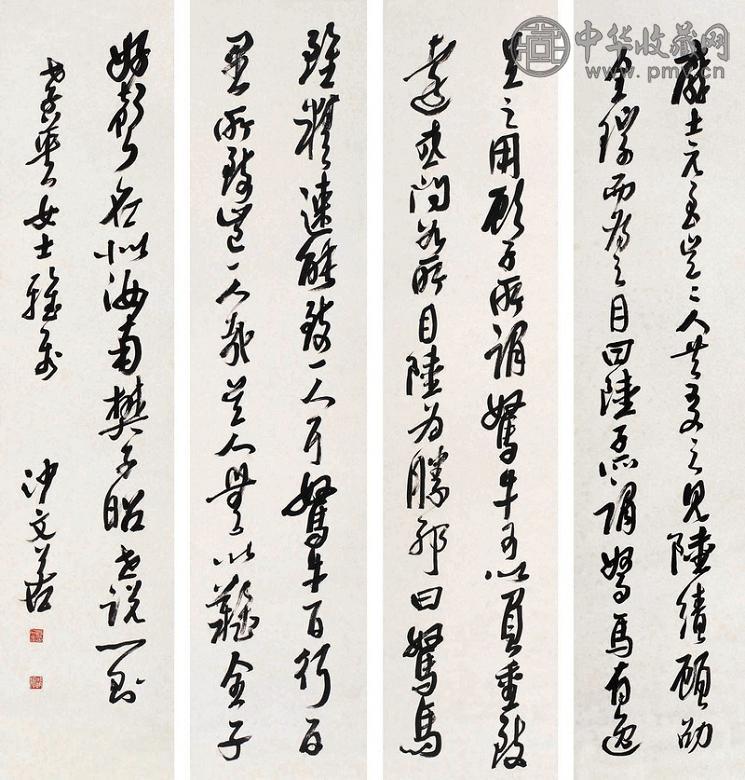 中华收藏网
www.pmcv.cn
龐士元至吴々人並友之見陸績顧劭
全琮而為之目曰陸子所謂駑馬有逸
足之用顧子所謂駑牛可以負重致
遠或問如所目陸為勝邪曰駑馬
雖精速能致一人耳駑牛一日行百
里所致豈一人哉吴人無以難全子
好聲名似汝南樊子昭世説一則
女士雅属
沙文若